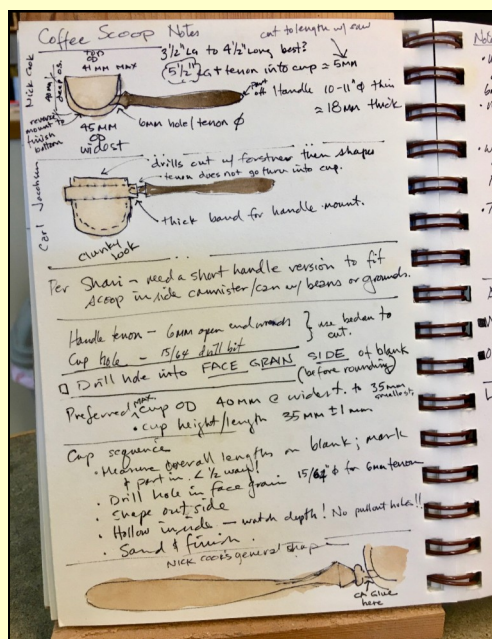 Coffee Scoop Notes
cut to length w/ saw
Nick Cook
TOP
OD
41 MM MAX
3 1/2" LG to 4 1/2" Long best?
5 1/2" LG + tenon into cup ≈ 5MM
part off
Handle 10-11" ∅ thin
≈ 18 mm thick
40 MM deep O.S.
reverse mount to finish bottom
45 MM
OD
widest
6MM hole/tenon ∅
Carl Jacobson
• drills cut w/ forstner then shapes
- tenon does not go thru into cup.
thick band for handle mount.
clunky look
Per Shari - need a short handle version to fit
scoop inside cannister/can w/ beans or grounds.
Handle tenon - 6MM open end wrench } use bedan to
Cup hole - 15/64 drill bit cut.
□ Drill hole into FACE GRAIN SIDE of blank
(before rounding)
Preferred MAX. cup OD 40MM @ widest. to 35mm smallest.
• cup height/length 35 MM ± 1 mm
Cup sequence
• Measure overall lengths on blank; mark
& part in. < 1/2 way!
• Drill hole in face grain 15/64" ∅ for 6mm tenon
• Shape outside
• Hollow inside - watch depth! No pullout hole!!
• Sand & finish.
NICK COOK'S general shape
CA Glue
here